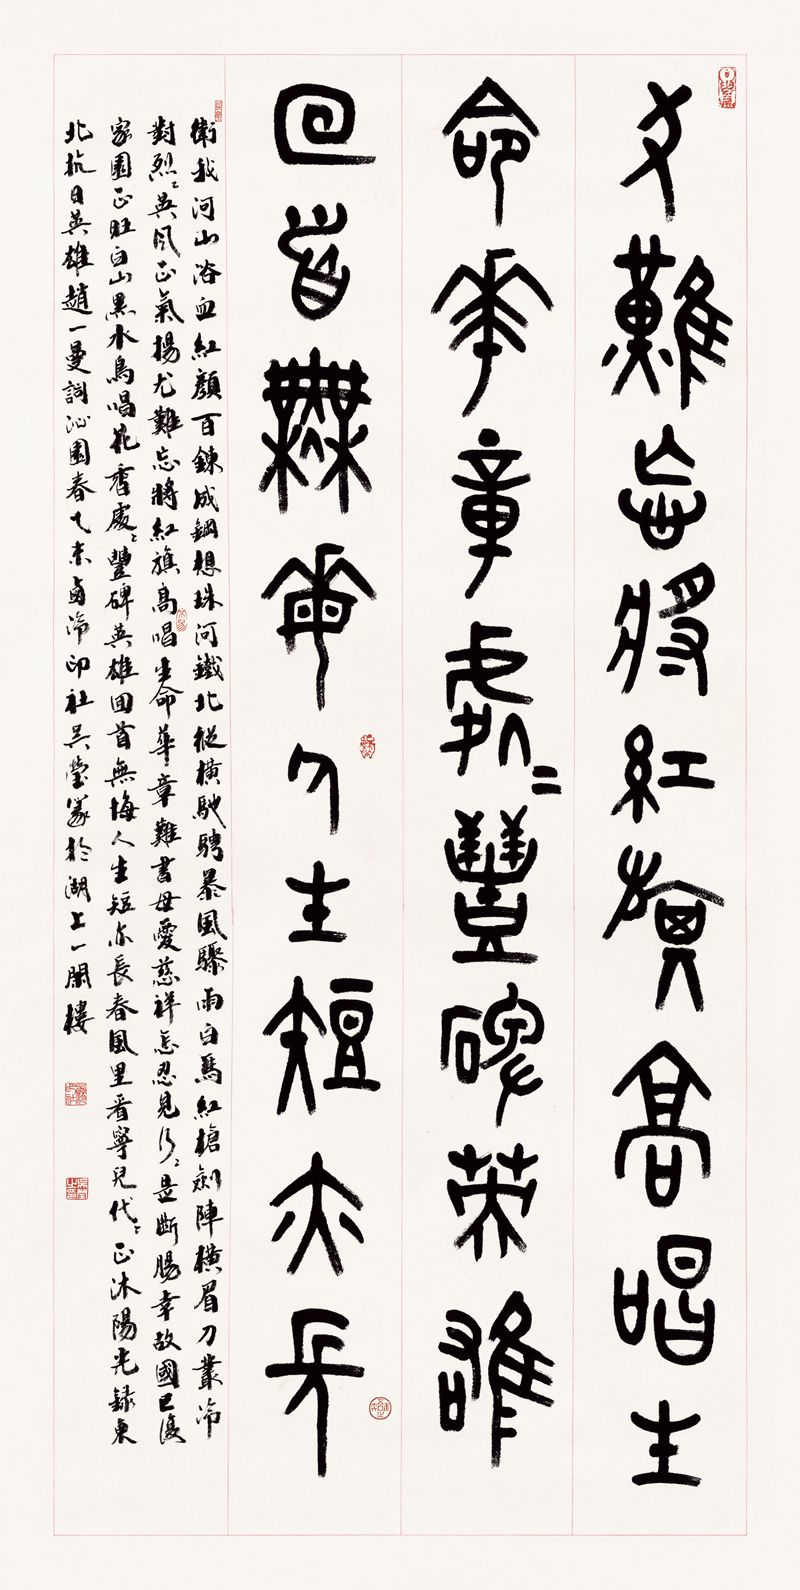 尤難忘將紅旗高唱生
命華章處〻豐碑英雄
回首無悔人生短亦長
衛我河山浴血紅顏百鍊成鋼想珠河鐵北從橫馳騁暴風驟雨白馬紅槍劍陣橫眉刀叢冷
對烈〻英風正氣揚尤難忘將紅旗高唱生命華章難書母愛慈祥怎忍見行〻是斷腸幸故國已復
家園正旺白山黑水鳥唱花香處〻豐碑英雄回首無悔人生短亦長春風里看寧兒代〻正沐陽光錄東
北抗日英雄趙一曼詞沁園春乙未鹵泠印社吳瑩篆於湖上一閑樓